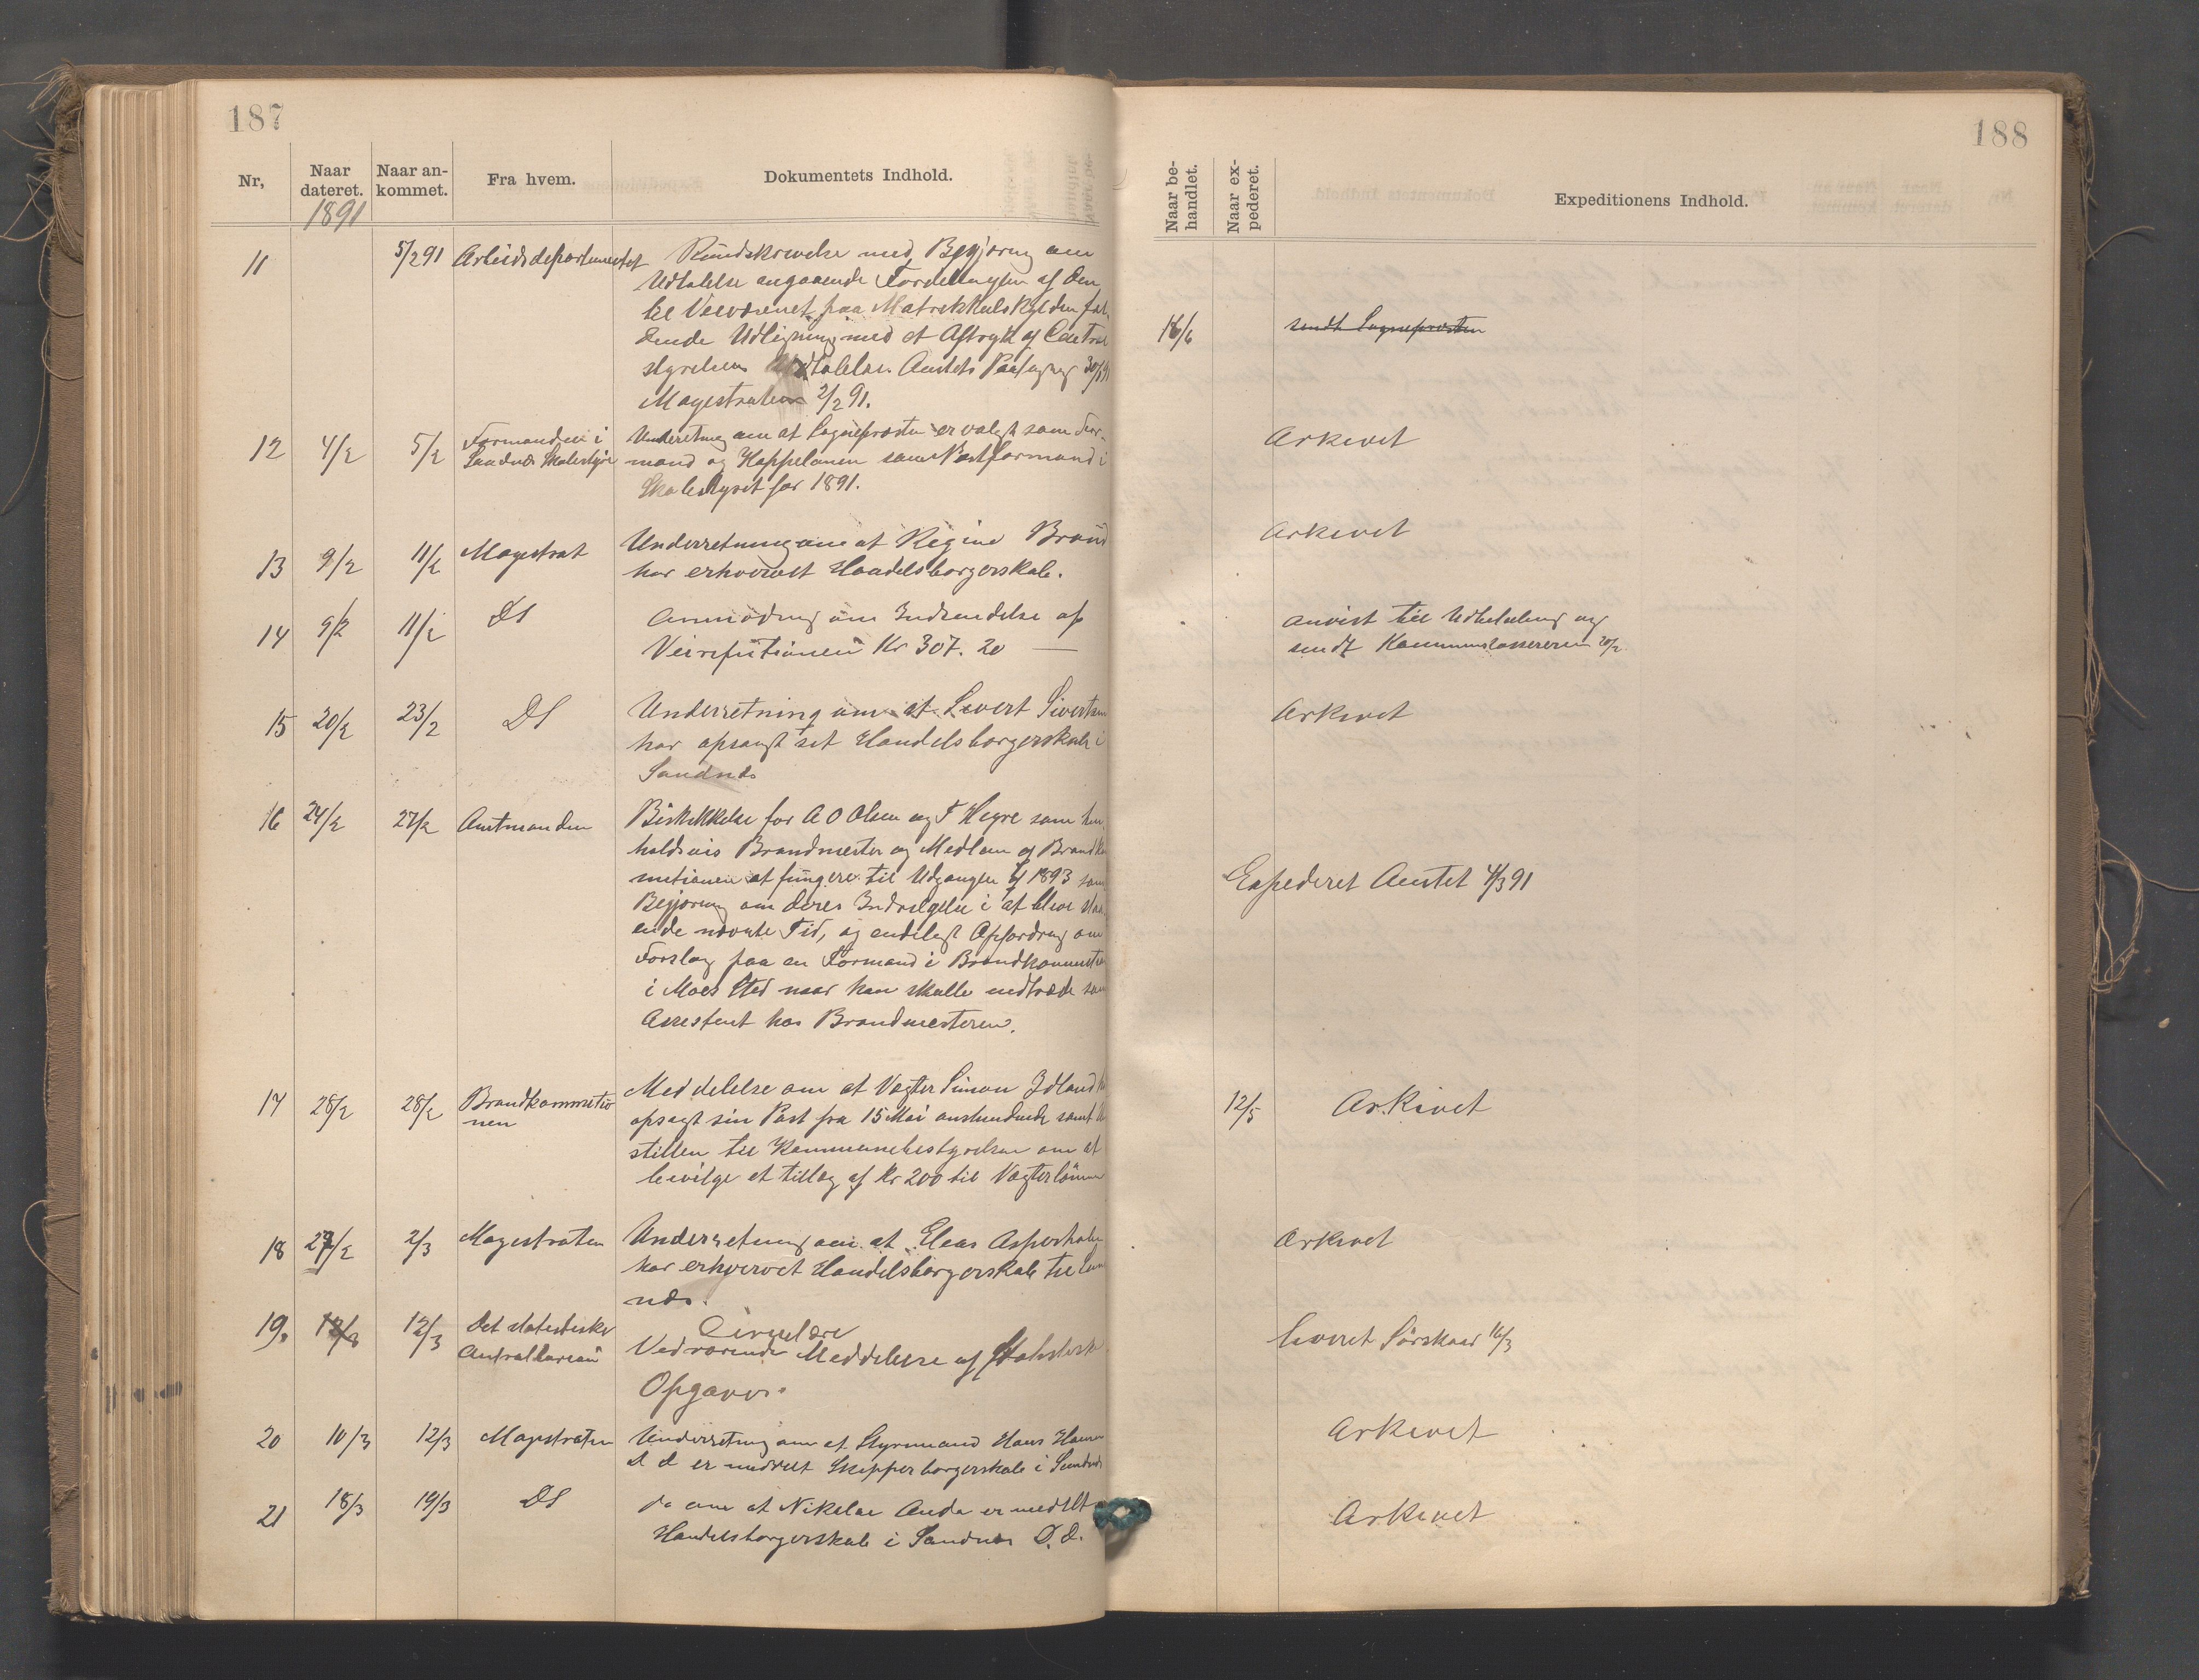 187
Nr,
Naar dateret.
Naar ankommet.
Fra hvem.
Dokumentets Indhold.
1891
11
5/2 91
Arbeidsdepartementet
Rundskrivelse med Begjæring om
Udtalelse angaaende Fordelingen af den
til Veivæsenet paa Matrikkulskylden fal-
dende Udligning med et Aftryk af Central
styrelsens Udtalelse. Amtets Paategn
Magistraten 2/2 91.
12
4/2
5/2
Formanden i
Sandnes Skolestyre
Underretning om at Sognepresten er valgt som For-
mand og Kappelanen som Næstformand i
Skolestyret for 1891.
13
9/2
11/2
Magistrat
Underretning om at Regine
har erhvervet Handelsborgerskab.
14
9/2
11/2
DS
Anmodning om Indsendelse af
Veirepatitionen Kr 307. 20
15
20/2
23/2
DS
Underretning om at Sivert Sivertsen
har opsagt sit Handelsborgerskab i
Sandnæs
16
24/2
27/2
Amtmanden
Beskikkelse for A O Olsen og T Hegre som hen-
holdsvis Brandmester og Medlem af Brandko
missionen at fungere til Udgangen af 1893 samt
Begjæring om deres Indvilgelse i at blive staa-
ende nævnte Tid, og endeligt Opfordring om
Forslag paa en Formand i Brandkommission
i Moes Sted naar han skulle indtræde som
Assistent hos Brandmesteren.
17
28/2
28/2
Brandkommisio
nen
Meddelelse om at Vægter Simon Idland
opsagt sin Post fra 15 Mai anstundende samt
stillen til Kommunebestyrelsen om at
bevilge et tillæg af Kr 200 til Vægterlønnen
18
27/2
2/3
Magistraten
Underretning om at Elias
har erhvervet Handelsborgerskab til Sand
næs.
19.
12/3
12/3
Det statistiske
Centralbureau
Cirqulære
Vedrørende Meddelelse af Statistiske
Opgaver.
20
10/3
12/3
Magistraten
Underretning om at Styrmand Hans Hansen
D d er meddelt Skipperborgerskab i Sandnæs
21
18/3
19/3
DS
do om at Nikolai Anda er meddelt
Handelsborgerskab i Sandnæs D. d.
188
Naar behandlet.
Naar expederet.
Expeditionens Indhold.
16/6
sendt Sognepræsten
Arkivet
Arkivet
anvist til Udbetaling og
sendt Kommunekassereren 20/2
Arkivet
Expederet Amtet 4/3 91
12/5
Arkivet
Arkivet
leveret Sörskaar 16/3
Arkivet
Arkivet